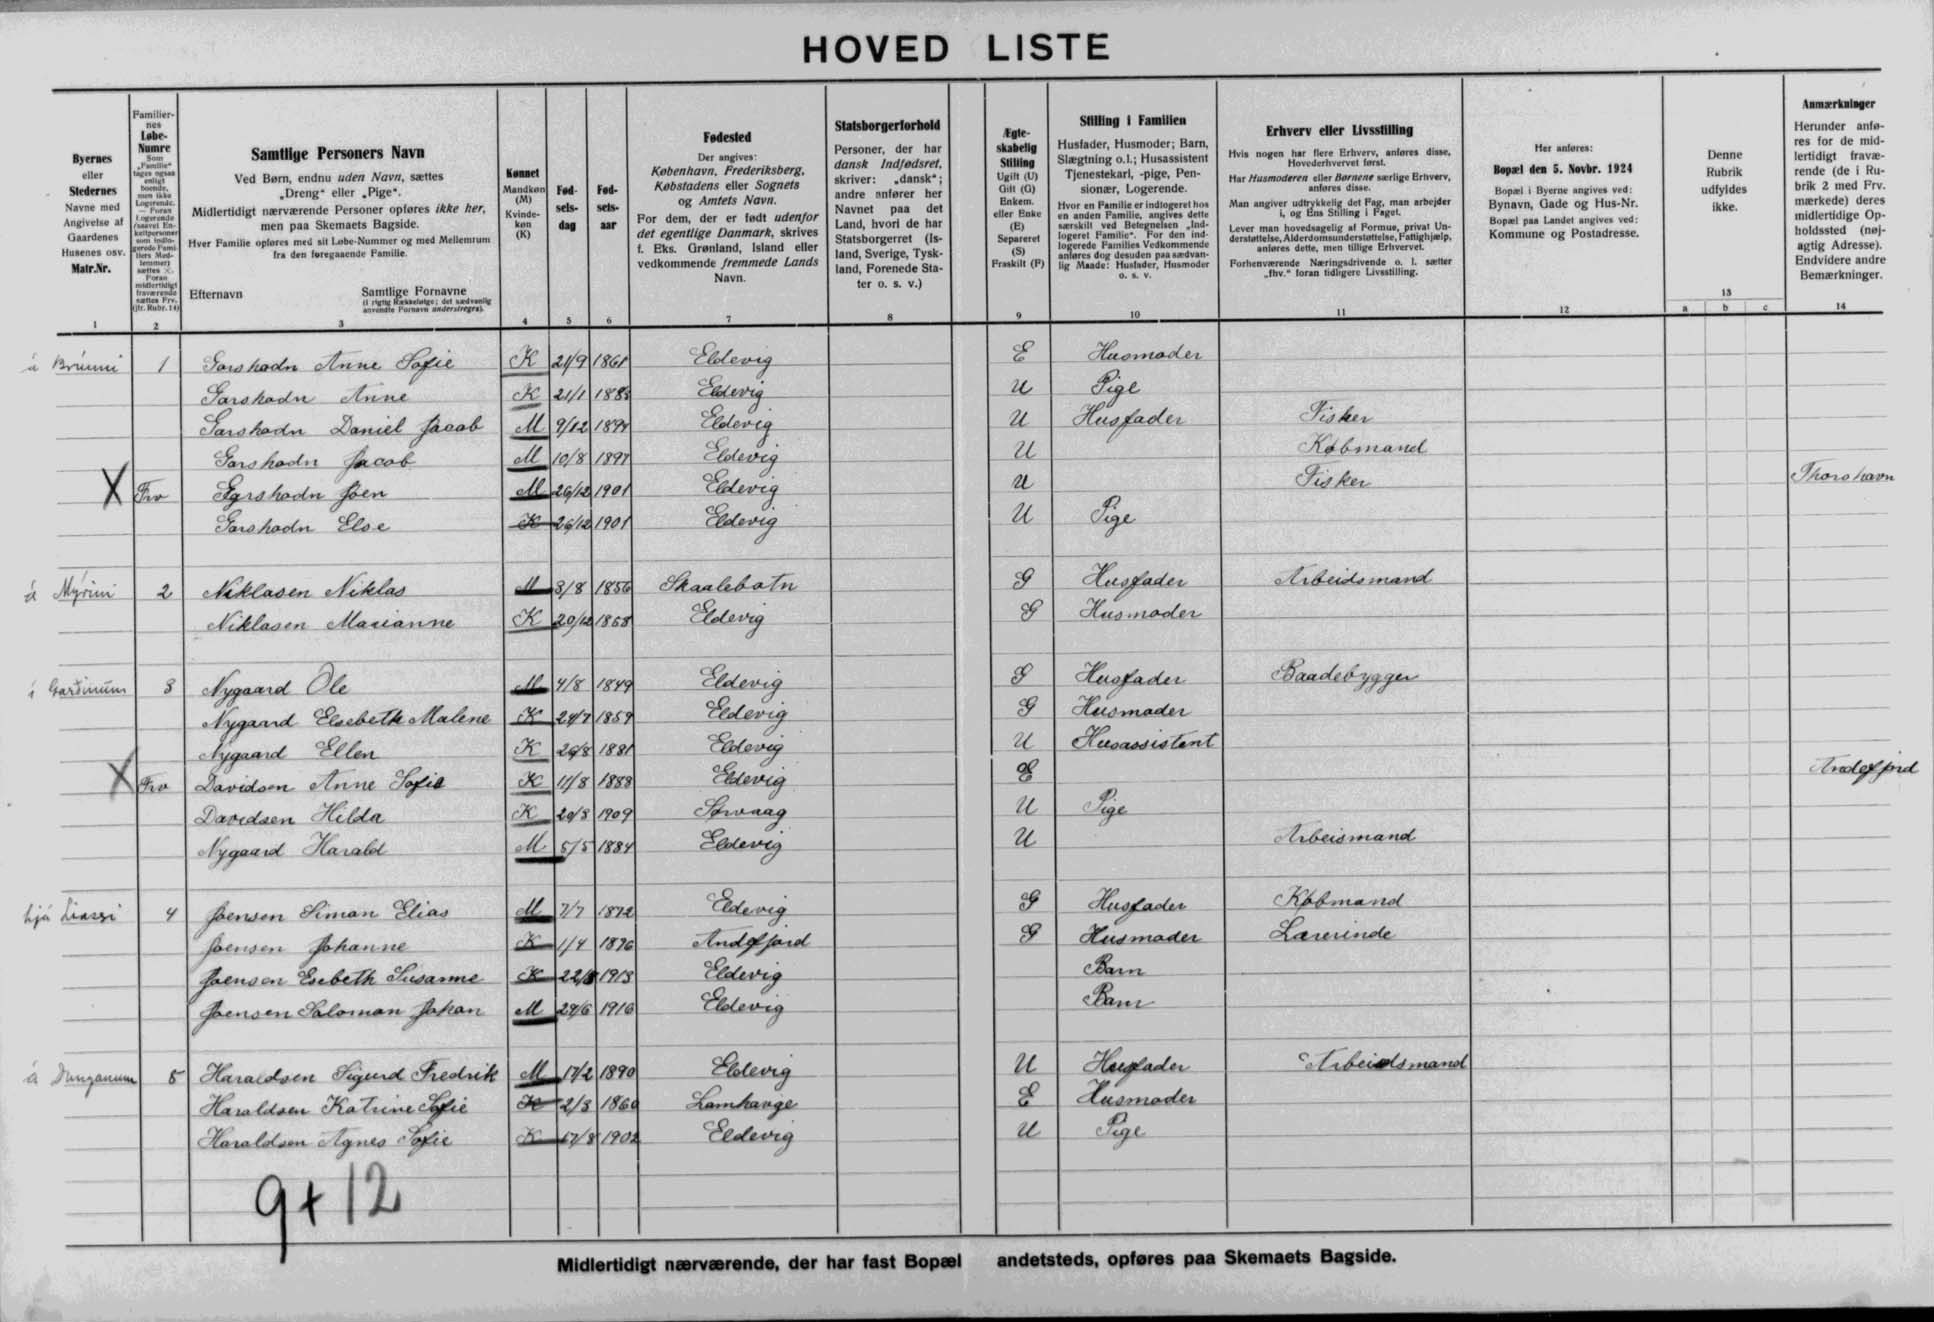 HOVED LISTE
Byernes
eller
Stedernes
Navne med
Angivelse af
Gaardenes
Husenes osv.
Matr.Nr.
1
Familier-
nes
Løbe-
Numre
Som
„Familie“
tages ogsaa
enligt
boende,
men ikke
Logerende.
— Foran
Logerende
(saavel En-
keltpersoner
som indlo-
gerede Fami-
liers Med-
lemmer)
sættes ×.
Foran
midlertidigt
fraværende
sættes Frv.
(jfr. Rubr. 14)
2
Samtlige Personers Navn
Ved Børn, endnu uden Navn, sættes
„Dreng“ eller „Pige“.
Midlertidigt nærværende Personer opføres ikke her,
men paa Skemaets Bagside.
Hver Familie opføres med sit Løbe-Nummer og med Mellemrum
fra den foregaaende Familie.
Efternavn
Samtlige Fornavne
(i rigtig Rækkefølge; det sædvanlig
anvendte Fornavn understreges).
3
Kønnet
Mandkøn
(M)
Kvinde-
køn
(K)
4
Fød-
sels-
dag
5
Fød-
sels-
aar
6
Fødested
Der angives:
København, Frederiksberg,
Købstadens eller Sognets
og Amtets Navn.
For dem, der er født udenfor
det egentlige Danmark, skrives
f. Eks. Grønland, Island eller
vedkommende fremmede Lands
Navn.
7
Statsborgerforhold
Personer, der har
dansk Indfødsret,
skriver: „dansk“;
andre anfører her
Navnet paa det
Land, hvori de har
Statsborgerret (Is-
land, Sverige, Tysk-
land, Forenede Sta-
ter o. s. v.)
8
Ægte-
skabelig
Stilling
Ugift (U)
Gift (G)
Enkem.
eller Enke
(E)
Separeret
(S)
Fraskilt (F)
9
Stilling i Familien
Husfader, Husmoder; Barn,
Slægtning o.l.; Husassistent
Tjenestekarl, -pige, Pen-
sionær, Logerende.
Hvor en Familie er indlogeret hos
en anden Familie, angives dette
særskilt ved Betegnelsen „Ind-
logeret Familie“. For den ind-
logerede Families Vedkommende
anføres dog desuden paa sædvan-
lig Maade: Husfader, Husmoder
o. s. v.
10
Erhverv eller Livsstilling
Hvis nogen har flere Erhverv, anføres disse,
Hovederhvervet først.
Har Husmoderen eller Børnene særlige Erhverv,
anføres disse.
Man angiver udtrykkelig det Fag, man arbejder
i, og Ens Stilling i Faget.
Lever man hovedsagelig af Formue, privat Un-
derstøttelse, Alderdomsunderstøttelse, Fattighjælp,
anføres dette, men tillige Erhvervet.
Forhenværende Næringsdrivende o. l. sætter
„fhv.“ foran tidligere Livsstilling.
11
Her anføres:
Bopæl den 5. Novbr. 1924
Bopæl i Byerne angives ved:
Bynavn, Gade og Hus-Nr.
Bopæl paa Landet angives ved:
Kommune og Postadresse.
12
Denne
Rubrik
udfyldes
ikke.
13
a b c
Anmærkninger
Herunder anfø-
res for de mid-
lertidigt fravæ-
rende (de i Ru-
brik 2 med Frv.
mærkede) deres
midlertidige Op-
holdssted (nøj-
agtig Adresse).
Endvidere andre
Bemærkninger.
14
á Brúnni 1 Garshodn Anne Sofie K 21/9 1861 Eldevig E Husmoder
Garshodn Anne K 21/1 Eldevig U Pige
Garshodn Daniel Jacob M 9/12 Eldevig U Husfader Fisker
Garshodn Jacob M 10/8 1897 Eldevig U Købmand
X Frv Garshodn Joen M 26/12 1901 Eldevig U Fisker Thorshavn
Garshodn Else K 26/12 1901 Eldevig U Pige
á Mýrini 2 Niklasen Niklas M 3/8 1856 Skaalebotn G Husfader Arbeidsmand
Niklasen Marianne K 20/12 1858 Eldevig G Husmoder
í Garðinum 3 Nygaard Ole M 4/8 1849 Eldevig G Husfader Baadebygger
Nygaard Elsebeth Malene K 29/7 1859 Eldevig G Husmoder
Nygaard Ellen K 26/8 1881 Eldevig U Husassistent
X Frv Davidsen Anne Sofie K 11/8 1888 Eldevig E Andefjord
Davidsen Hilda K 20/8 1909 Sørvaag U Pige
Nygaard Harald M 5/5 1884 Eldevig U Arbeismand
hjá Liassi 4 Joensen Simon Elias M 7/7 1872 Eldevig G Husfader Købmand
Joensen Johanne K 1/4 1876 Andefjord G Husmoder Lærerinde
Joensen Esebeth Susanne K 1913 Eldevig Barn
Joensen Salomon Johan M 29/6 1916 Eldevig Barn
á Dunganum 5 Haraldsen Sigurd Fredrik M 17/2 1890 Eldevig U Husfader Arbeidsmand
Haraldsen Katrine Sofie K 2/3 1860 Lamhauge E Husmoder
Haraldsen Agnes Sofie K 17/8 1902 Eldevig U Pige
9+12
Midlertidigt nærværende, der har fast Bopæl andetsteds, opføres paa Skemaets Bagside.